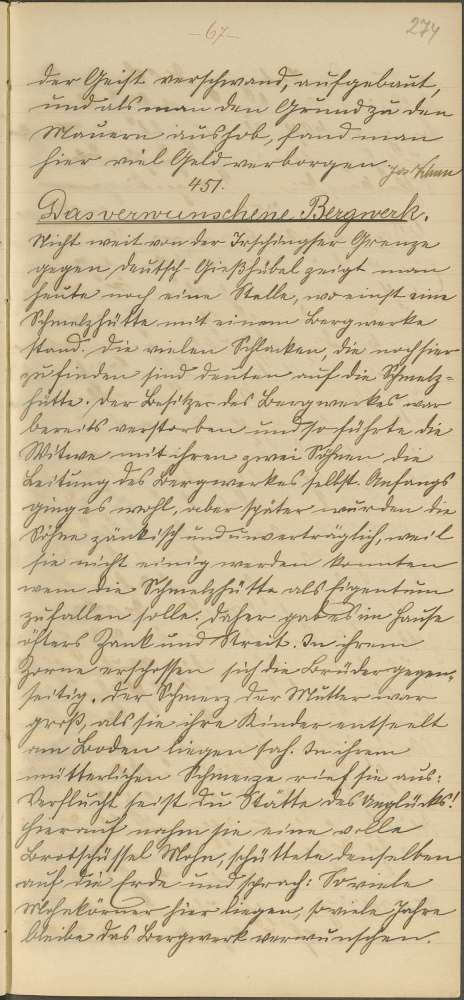 -67-
274
der Geist verschwand, aufgebaut,
und als man den Grund zu den
Mauern aushob, fand man
hier viel Geld verborgen. Jos
451.
Das verwunschene Bergwerk.
Nicht weit von der Grenze
gegen Deutsch-Gießhübel zeigt man
heute noch eine Stelle, wo einst eine
Schmelzhütte mit einem Bergwerke
stand. Die vielen Schlacken, die noch hier
zu finden sind deuten auf die Schmelz-
hütte. Der Besitzer des Bergwerkes war
bereits verstorben und so führte die
Witwe mit ihren zwei Söhnen die
Leitung des Bergwerkes selbst. Anfangs
ging es wohl, aber später wurden die
Söhne zänkisch und unverträglich, weil
sie nicht einig werden konnten
wem die Schmelzhütte als Eigentum
zufallen solle. Daher gab es im Hause
öfters Zank und Streit. In ihrem
Zorne erschossen sich die Brüder gegen-
seitig. Der Schmerz der Mutter war
groß, als sie ihre Kinder entseelt
am Boden liegen sah. In ihrem
mütterlichen Schmerze rief sie aus:
Verflucht seist du Stätte des Unglücks!
Hierauf nahm sie eine volle
Brotschüssel Mohn, schüttete denselben
auf die Erde und sprach: So viele
Mohnkörner hier liegen, so viele Jahre
bleibe das Bergwerk verwunschen.